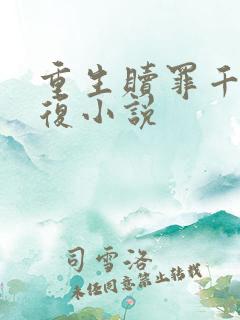 重生贖罪千
復小説
司雪洛
未经同意禁止转载